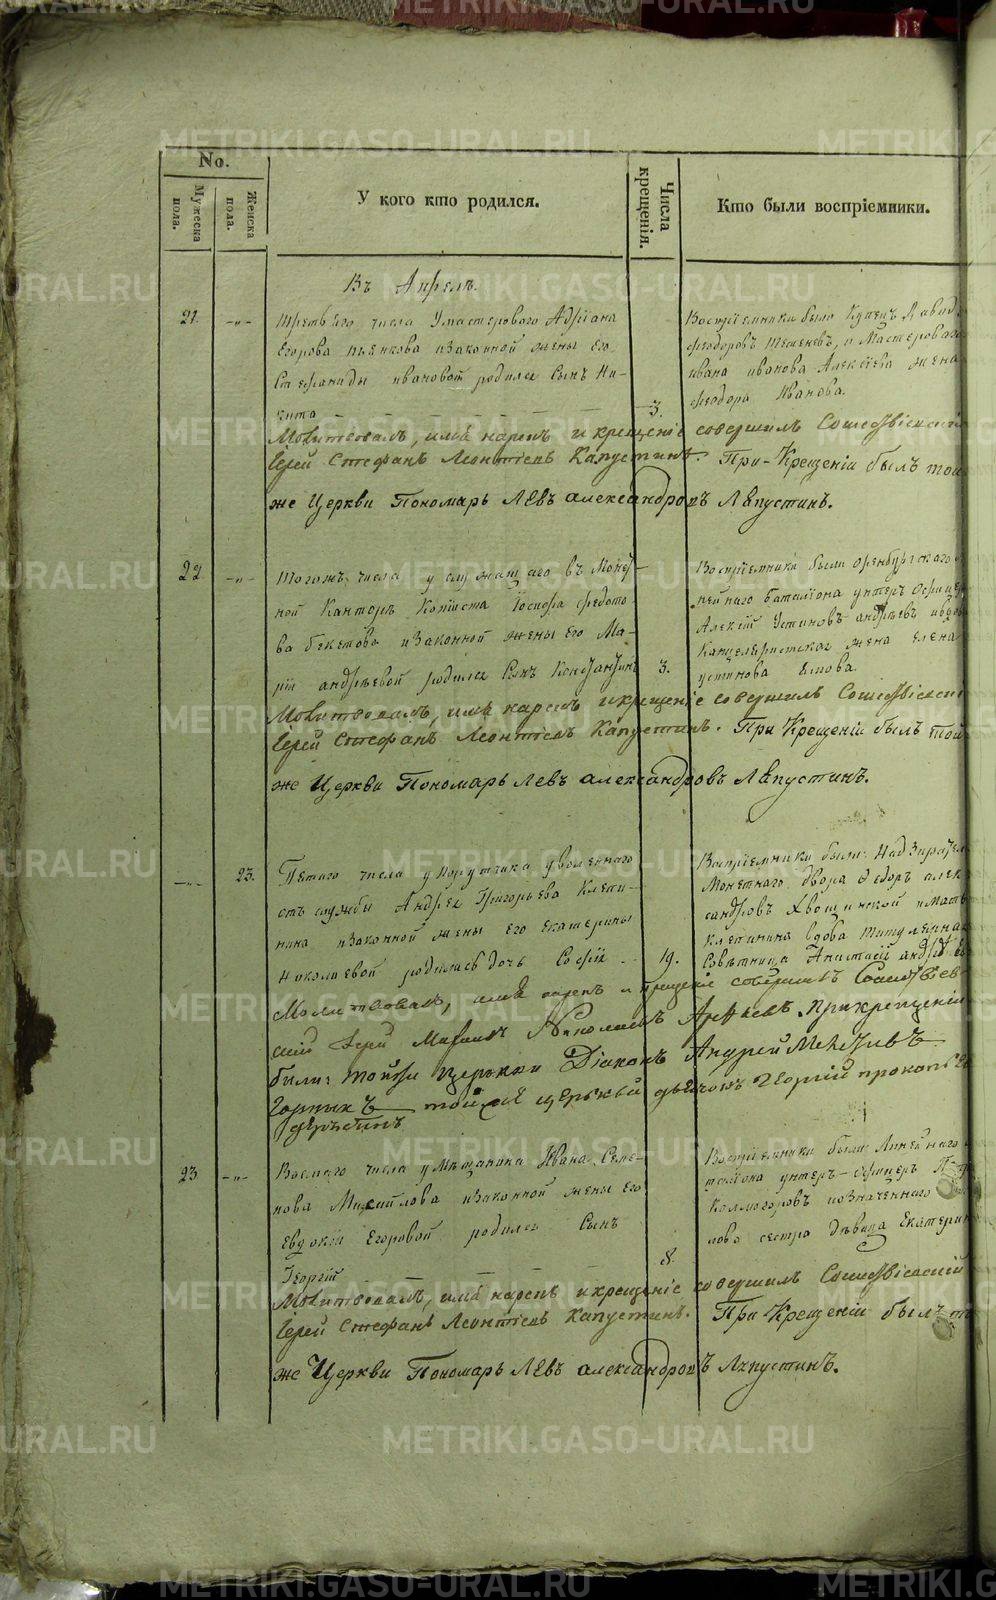 No.
Мужеска пола.
Женска пола.
У кого кто родился.
Числа крещенія.
Кто были воспріемники.
Въ Апрелѣ.
21. -„-
третьяго числа Умастероваго Адріана
Егорова изаконной жены Его
Стефаниды ивановой родился Сынъ Ни-
кита
3.
Воспріемники были Купецъ Давид
феодоровъ и Мастероваго
ивана иванова Алексѣева жена
феодора Иванова.
Молитвовалъ, имя нарекъ и крещеніе совершилъ Сошествіевскій
Іерей Стефанъ Леонтіевъ Капустинъ. При Крещеніи былъ той
же Церкви Пономарь Левъ александровъ Ляпустинъ.
22 -„-
тогожъ числа у служащаго въ Монет-
ной Канторѣ Копіиста Іосифа федото-
ва бекетова изаконной жены его Ма-
ріи андреевой родился Сынъ Константинъ
3.
Воспріемники были оренбургскаго
нейнаго баталіона унтеръ офицер
Алексѣй Устиновъ андреевъ
Канцеляристская жена елена
устинова
Молитвовалъ, имя нарекъ и крещеніе совершилъ Сошествіевскій
Іерей Стефанъ Леонтіевъ Капустинъ. При Крещеніи былъ той
же Церкви Пономарь Левъ александровъ Ляпустинъ.
-„- 23.
Пятаго числа упорутчика уволеннаго
отъ службы Андрея Григорьева Клепи-
нина изаконной жены его екатерины
николаевой родилась дочь Софія
19.
Воспріемники были: Надзирател
Монетнаго двора Ѳедоръ алек
сандровъ Хвощинской имать
клепинина вдова титулярная
Совѣтница Анастасія андре
Молитвовалъ, имя нарекъ и крещеніе совершилъ Сошествіев-
скій Іерей Михаилъ Николаевъ Арефьевъ. При крещеніи
были: тойже церкви Діаконъ Андрей
той же церкви дьячокъ Георгій прокопьев
23 -„-
Восмаго числа у Мѣщанина Ивана Семе-
нова Михайлова изаконной жены его
Евдокіи Егоровой родился Сынъ
Георгій
8.
Воспріемники были Линейнаго
талiона унтеръ-офицеръ
Колмогоровъ иозначеннаго
лова сестра дѣвица Екатерин
Молитвовалъ, имя нарекъ и крещеніе совершилъ Сошествіевскій
Іерей Стефанъ Леонтіевъ Капустинъ. При Крещеніи былъ т
же Церкви Пономарь Левъ александровъ Ляпустинъ.
METRIKI.GASO-URAL.RU